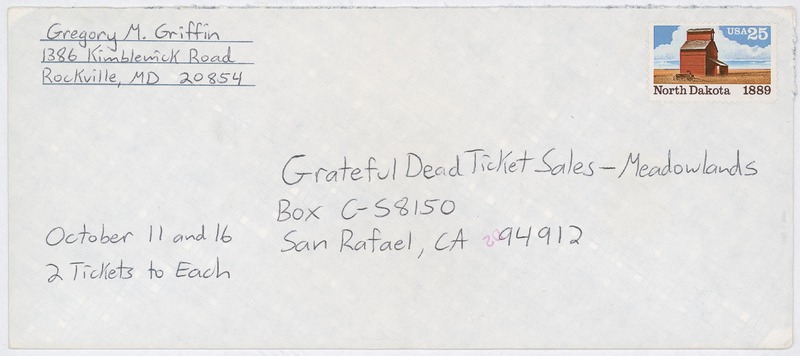 Gregory M. Griffin
1386 Kimblewick Road
Rockville, MD 20854
USA 25
North Dakota 1889
Grateful Dead Ticket Sales – Meadowlands
Box C-S8150
San Rafael, CA 94912
October 11 and 16
2 Tickets to Each